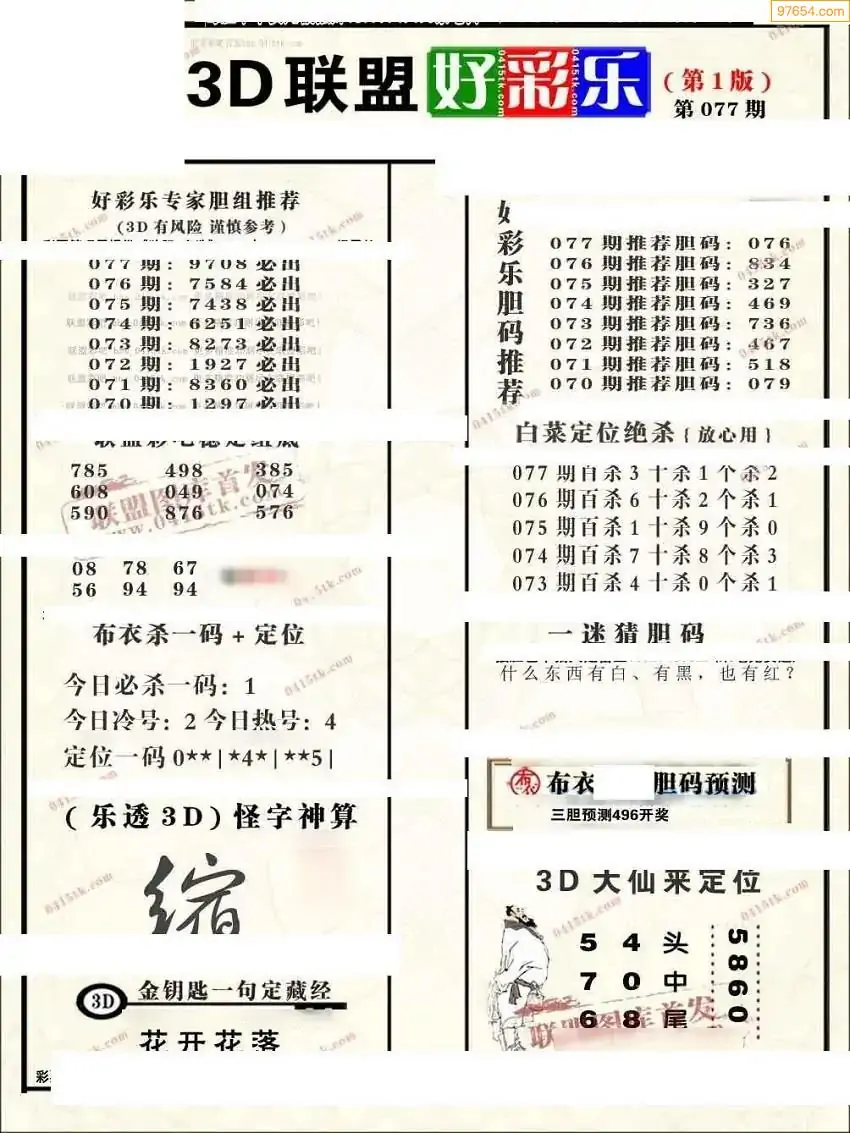 97654.com
3D联盟 好彩乐
0415tk.com
0415tk.com
(第1版)
第077期
好彩乐专家胆组推荐
(3D有风险 谨慎参考)
077期: 9708必出
076期: 7584必出
075期: 7438必出
074期: 6251必出
073期: 8273必出
072期: 1927必出
071期: 8360必出
070期: 1297必出
785 498 385
608 049 074
590 876 576
联盟图库首发
www.0415tk.com
08 78 67
56 94 94
布衣杀一码+定位
今日必杀一码: 1
今日冷号: 2 今日热号: 4
定位一码 0**|*4*|**5|
(乐透3D)怪字神算
缩
3D 金钥匙一句定藏经
花开花落
彩
好彩乐胆码推荐
077期推荐胆码: 076
076期推荐胆码: 834
075期推荐胆码: 327
074期推荐胆码: 469
073期推荐胆码: 736
072期推荐胆码: 467
071期推荐胆码: 518
070期推荐胆码: 079
白菜定位绝杀{放心用}
077期百杀3十杀1个杀2
076期百杀6十杀2个杀1
075期百杀1十杀9个杀0
074期百杀7十杀8个杀3
073期百杀4十杀0个杀1
一迷猜胆码
什么东西有白、有黑，也有红?
布衣 胆码预测
三胆预测496开奖
3D大仙来定位
5 4 头
7 0 中
6 8 尾
5860
联盟图库首发
0415tk.com